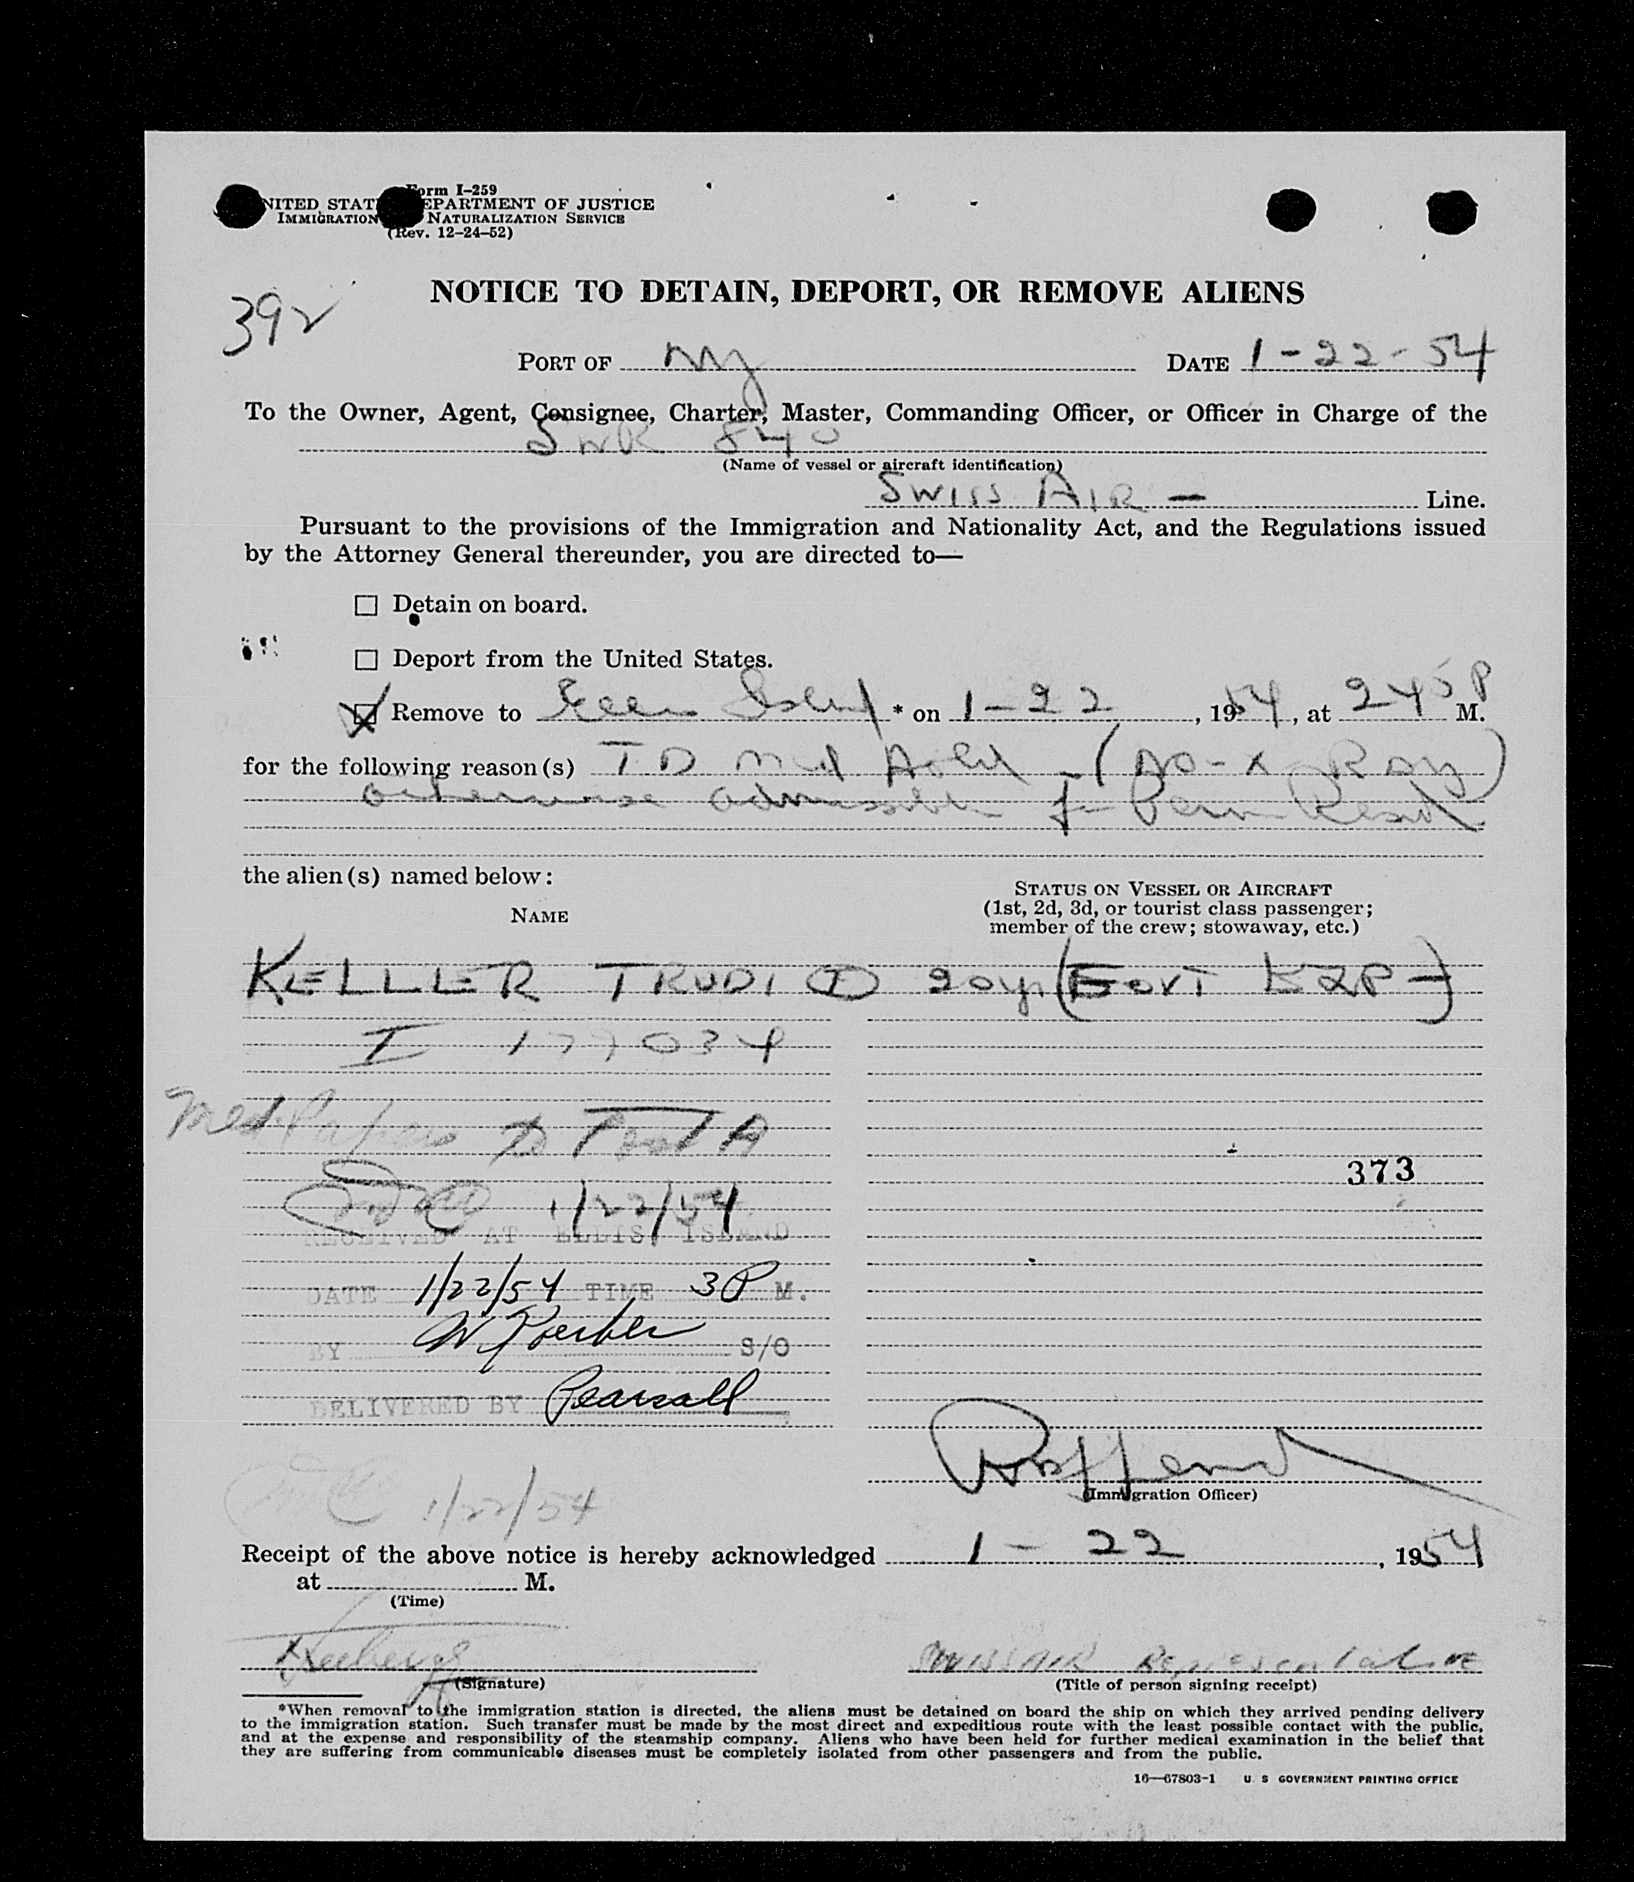 Form I-259
UNITED STATES DEPARTMENT OF JUSTICE
IMMIGRATION NATURALIZATION SERVICE
(Rev. 12-24-52)
392
NOTICE TO DETAIN, DEPORT, OR REMOVE ALIENS
PORT OF NY DATE 1-22-54
To the Owner, Agent, Consignee, Charter, Master, Commanding Officer, or Officer in Charge of the
SWR 840
(Name of vessel or aircraft identification)
SWISS AIR - Line.
Pursuant to the provisions of the Immigration and Nationality Act, and the Regulations issued
by the Attorney General thereunder, you are directed to—
☐ Detain on board.
☐ Deport from the United States.
☒ Remove to Ellis Island * on 1-22, 1954, at 245 P M.
for the following reason(s) TD Med Hold - (no-x Ray)
otherwise admissible for Perm Resid
the alien(s) named below:
NAME
STATUS ON VESSEL OR AIRCRAFT
(1st, 2d, 3d, or tourist class passenger;
member of the crew; stowaway, etc.)
KELLER TRUDI I 20 yr (GOVT EXP-)
I 177034
Med. Papers to
373
1/22/54
RECEIVED AT ELLIS ISLAND
DATE 1/22/54 TIME 3P M.
BY W S/O
DELIVERED BY Pearsall
(Immigration Officer)
1/22/54
Receipt of the above notice is hereby acknowledged 1-22, 1954
at M.
(Time)
SWISSAIR Representative
(Signature)
(Title of person signing receipt)
*When removal to the immigration station is directed, the aliens must be detained on board the ship on which they arrived pending delivery
to the immigration station. Such transfer must be made by the most direct and expeditious route with the least possible contact with the public,
and at the expense and responsibility of the steamship company. Aliens who have been held for further medical examination in the belief that
they are suffering from communicable diseases must be completely isolated from other passengers and from the public.
16—67803-1 U. S. GOVERNMENT PRINTING OFFICE